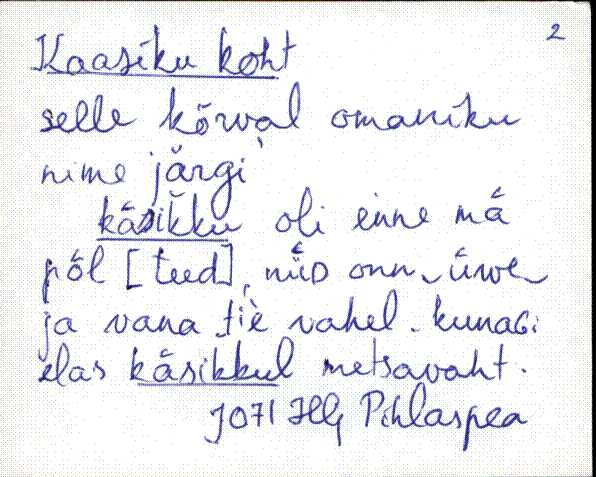 2
Kaasiku koht
selle kõrval omaniku
nime järgi
käsikku oli enne mä
pól [teed], niiD onn üwe
ja vana tiè vahel. kunaGi
elas käsikkul metsavaht.
J071 Pihlaspea